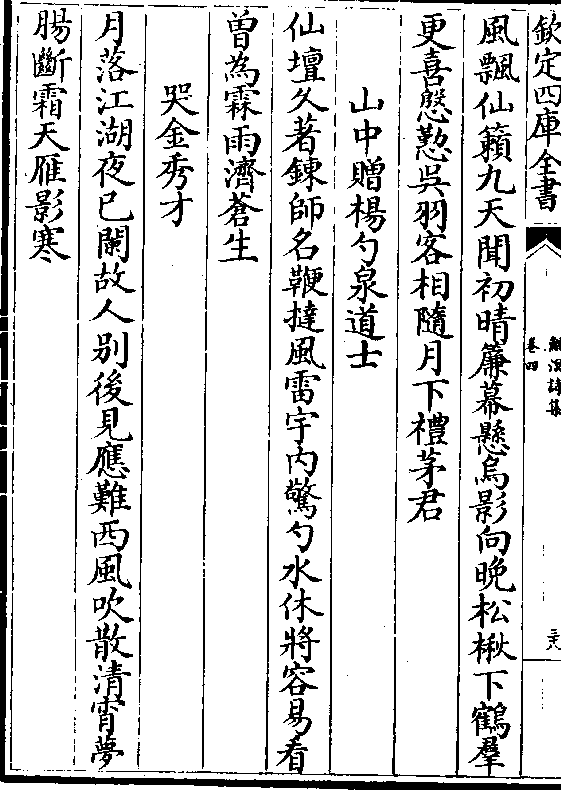 欽定四庫全書
鯤溟詩集
卷四
風飄仙籟九天聞初晴簾幕懸烏影向晚松楸下鶴羣
更喜慇懃吳羽客相隨月下禮茅君
山中贈楊勺泉道士
仙壇久著鍊師名鞭撻風雷宇内驚勺水休將容易看
曽為霖雨濟蒼生
哭金秀才
月落江湖夜已闌故人别後見應難西風吹散清霄夢
腸斷霜天雁影寒